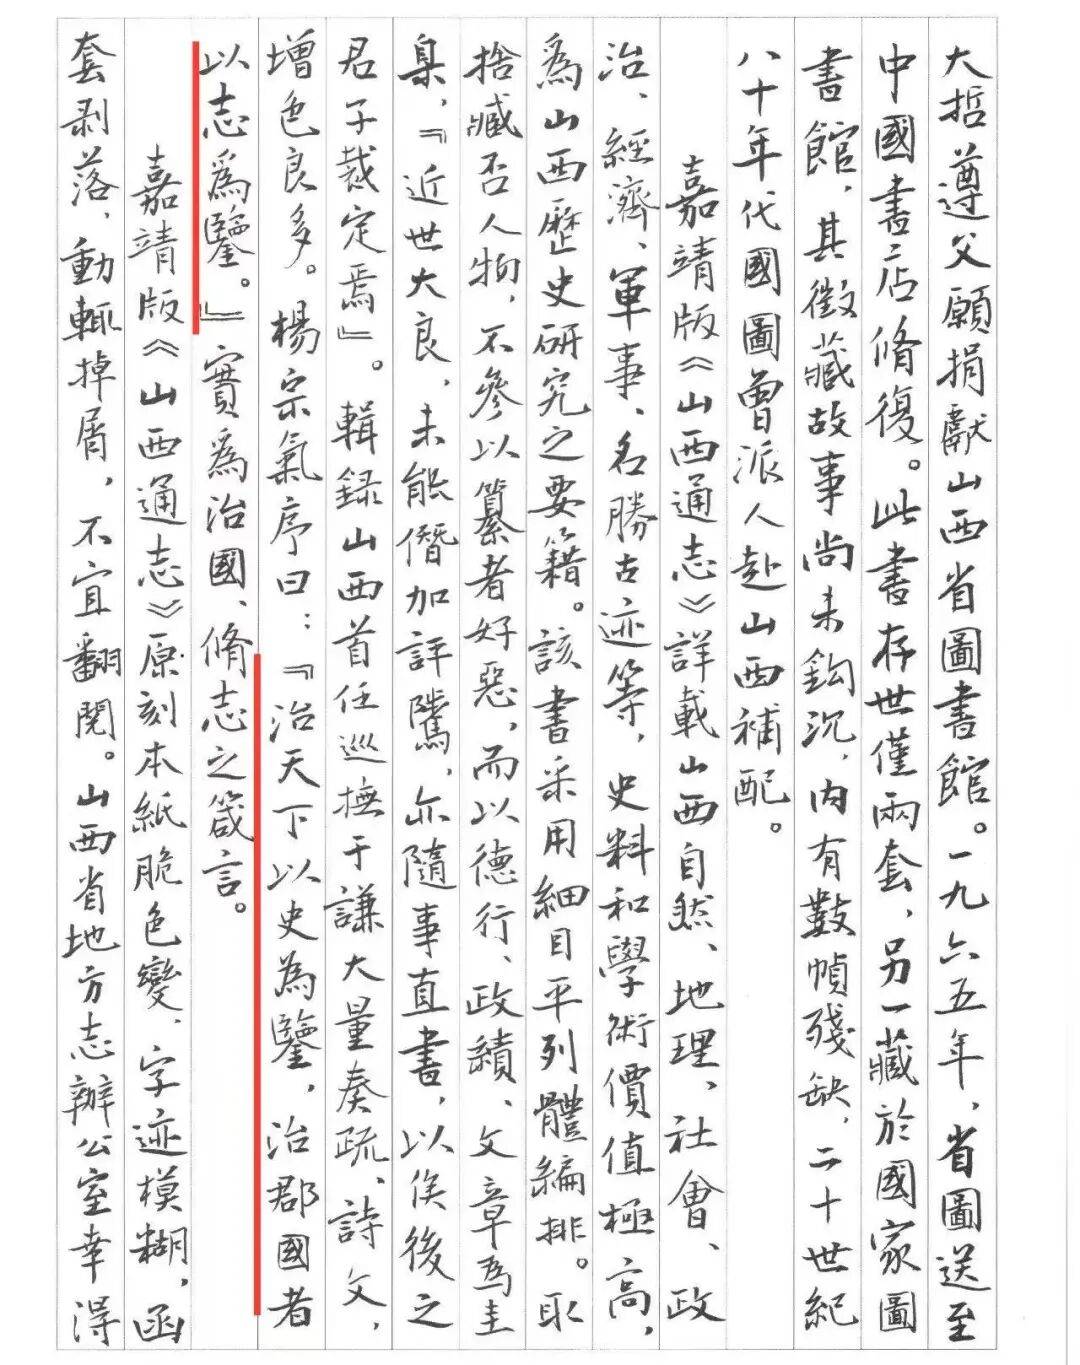 大哲遵父願捐獻山西省圖書館。一九六五年，省圖送至
中國書店脩復。此書存世僅兩套，另一藏於國家圖
書館，其徵藏故事尚未鈎沉，内有數幀殘缺，二十世紀
八十年代國圖曾派人赴山西補配。
嘉靖版《山西通志》詳載山西自然、地理、社會、政
治、經濟、軍事、名勝古迹等，史料和學術價值極高，
爲山西歷史研究之要籍。該書采用細目平列體編排。取
捨臧否人物，不參以纂者好惡，而以德行、政績、文章爲圭
臬，『近世大良，未能僭加評騭，亦隨事直書，以俟後之
君子裁定焉』。輯録山西首任巡撫于謙大量奏疏、詩文，
增色良多。楊宗氣序曰：『治天下以史為鑒，治郡國者
以志爲鑒。』實爲治國、脩志之箴言。
嘉靖版《山西通志》原刻本紙脆色變，字迹模糊，函
套剥落，動輒掉屑，不宜翻閲。山西省地方志辦公室幸得